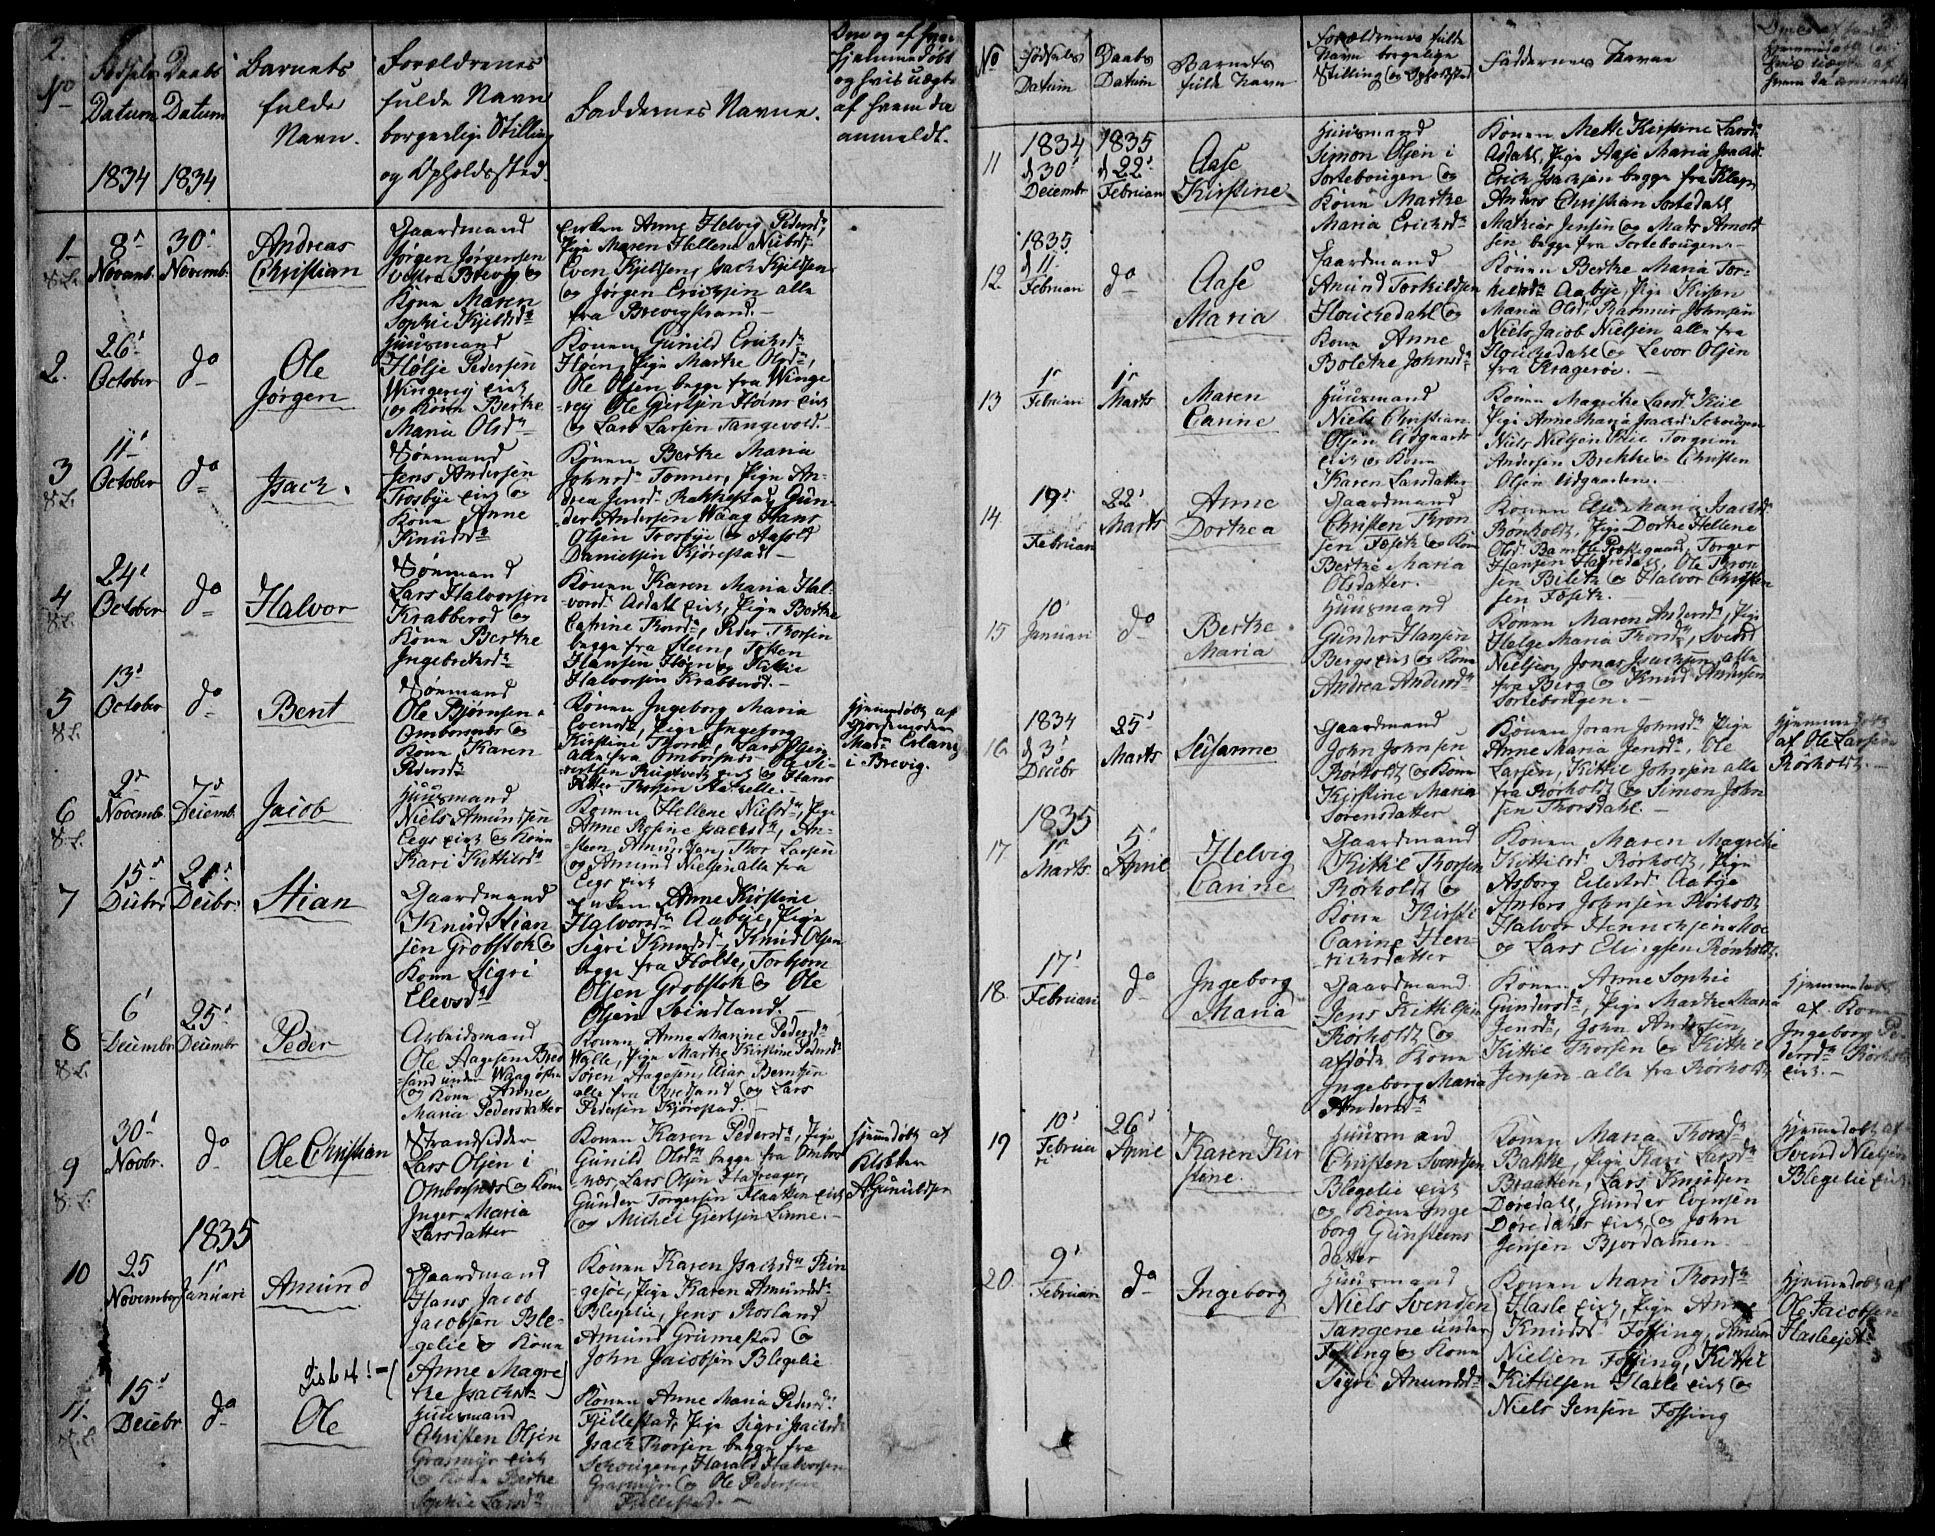 2.
No
Fødsels
Datum
1834
Daabs
Datum
1834
Barnets
fulde
Navn.
Forældrenes
fulde Navn
borgerlige Stilling
og Opholdssted.
Faddernes Navne.
Om og af hvem
hjemmedøbt
og hvis uægte
af hvem da
anmeldt.
1
8de
Novemb.
30te
Novemb.
Andreas
Christian
Gaardmand
Jørgen Jørgensen
Brevig og
Kone Maren
Sophie Kjeldsdr
Enken Anne Helvig Pedersdr
Pige Maren Hellene Nielsdr
Even Kjeldsen, Isach Kjeldsen
og Jørgen Ericksen alle
fra Brevigstrand.
2.
26de
October
do
Ole
Jørgen
Huusmand
Høljе Pedersen
Wingerej eiet
og Kone Berthe
Maria Olsdr
Konen Gunild Ericksdr
Høen, Pige Marthe Olsdr,
Ole Olsen begge fra Winge
-rej Ole Giertsen Høens eiet
og Lars Larsen Tangevold.
3
11te
October
do
Isach.
Sømand
Jens Andersen
Trosbye eiet og
Kone Anne
Knudsdr
Konen Berthe Maria
Johnsdr Tonner, Pige An-
drea Jensdr Rakkestad, Gun-
der Andersen Waag Hans
Olsen Trosbye og Aasold
Danielsen Kjørestad
4
24de
October
do
Halvor
Sømand
Lars Halvorsen
Krabberød og
Kone Berthe
Ingebretsdr
Konen Karen Maria Hal-
vorsdr Asdahl eiet, Pige Berthe
Catrine Thorsdr, Peder Thorsen
begge fra Steen,
Hansen Høen og Kittil
Halvorsen Krabberød.
5
13de
October
do
Bent
Sømand
Ole Bjørnsen
Ombordsnes og
Kone Karen
Pedersdr
Konen Ingeborg Maria
Evensdr, Pige Ingeborg
Kirstine Thorsdr, Lars Olsen
alle fra Ombordsnes Ole Si-
vertsen Rugtvedt eiet og Hans
Thorsen Stathelle.
hjemmedøbt af
Gjordemoder
Mad.
i Brevig.
6
2de
Novemb.
7de
Decemb.
Jacob
Huusmand
Niels Amundsen
Eegs eiet og Kone
Kari Kittilsdr
Konen Hellene Nielsdr, Pige
Anne Rosine Isachsdr, An-
-steen Amundsen, Thor Larsen
og Amund Nielsen alle fra
Eegs eiet
7
15de
Decbr
21de
Decbr.
Stian
Gaardmand
Knud Stian
sen Grobstok og
Kone Sigri
Elevsdr
Enken Anne Kirstine
Halvorsdr Aabye, Pige
Sigri Knudsdr, Knud Olsen
begge fra Holte, Torbjørn
Olsen Grobstok og Ole
Olsen Svindland.
8
6te
Decembr
25de
Decembr
Peder
Arbeidsmand
Ole Aagesen Bred
-sand under Waag østre
og Kone Anne
Maria Pedersdatter
Konen Anne Marine Pedersdr
Walle, Pige Marthe Kirstine Pedersdr
Søren Aagesen, Berntsen
alle fra Bredsand og Lars
Pedersen Kjørestad.
9
30te
Novbr.
do
Ole Christian
Strandsidder
Lars Olsen i
Ombordsnes og Kone
Inger Maria
Larsdatter
Konen Karen Pedersdr, Pige
Gunild Olsdr begge fra Ombords
nes, Lars Olsen Hafsrager,
Gunder Torgersen Flaatten eiet
og Michel Giertsen Linne.
hjemmedøbt af
Klokker
A Gunuldsen
1835
10
25
November
1te
Januari
Amund
Gaardmand
Hans Jacob
Jacobsen Ble-
gelie og Kone
Anne Magre
the Isachsdr
Konen Karen Isachsdr Rin-
gesøe, Pige Karen Amundsdr
Blegelie, Jens Rosland
Amund Grummestad og
John Jacobsen Blegelie
11.
15de
Decebr
do
Ole
Huusmand
Christen Olsen
Grasmyr eiet
og Kone Berthe
Sophie Larsdr
Konen Anne Maria Pedersdr
Fjellestad, Pige Sigri Isachsdr
Isach Thorsen begge fra
Skougen, Harald Halvorsen
Grasmyr og Ole Pedersen
Fjellestad.
No
Fødsels
Datum
Daabs
Datum
Barnets
fulde Navn
Forældrenes fulde
Navn borgerlige
Stilling og Opholdssted
Faddernes Navne
11
1834
d 30te
Decembr
1835
d 22de
Februari
Aase
Kirstine
Huusmand
Simon Olsen i
Sortebougen og
Kone Marthe
Maria Ericksdr
Konen Mette Kirstine Larsdr
Asdahl, Pige Aase Maria Isachsdr
Erick Isachsen begge fra Kleven
Anders Christian Sortedahl
Mathias Jensen og Mads Arnold
sen begge fra Sortebougen.
12
1835
d 11te
Februari
do
Aase
Maria
Gaardmand
Amund Torkildsen
Houckedahl og
Kone Anne
Bolette Johnsdr
Konen Berthe Maria Tor-
kildsdr Aabye, Pige Kirsten
Maria Olsdr, Rasmus Johnsen
Niels Jacob Nielsen alle fra
Houckedahl og Levor Olsen
fra Kragerøe.
13
1te
Februari
1te
Marts
Maren
Carine
Huusmand
Niels Christian
Olsen Udgaarden
eiet og Kone
Karen Larsdatter
Konen Magrethe Larsdr Kiil
Pige Anne Maria Isachsdr Schougen
Niels Nielsen Kiil Torgrim
Andersen Brekke og Christen
Olsen Udgaarden.
14
19de
Februari
22de
Marts
Anne
Dorthea
Gaardmand
Christen Thron
sen Fosseth og Kone
Berthe Maria
Olsdatter.
Konen Else Maria Isachsdr
Rønholdt, Pige Dorthe Hellene
Olsdr Bamble Præstegaard, Torger
Hansen Hafredahl, Ole Thron
sen Bileth og Halvor Christen
sen Fosseth.
15
10de
Januari
do
Berthe
Maria
Huusmand
Gunder Hansen
Bergs eiet og Kone
Andrea Andersdr
Konen Maren Andersdr, Pige
Helge Maria Thorsdr, Svend
Nielsen, Jonas Isachsen alle
fra Berg og Knud Amundsen
Sortebougen.
16
1834
d 3de
Decbr
25de
Marts
Susanne
Gaardmand
John Johnsen
Rørholdt og Kone
Kirstine Maria
Sørensdatter
Konen Joran Johnsdr, Pige
Anne Maria Jensdr, Ole
Larsen, Kittil Johnsen alle
fra Rørholdt og Simon John
sen Thorsdahl.
hjemmedøbt
af Ole Larsen
Rørholdt.
17
1835
1te
Marts
5te
April
Helvig
Carine
Gaardmand
Kittil Thorsen
Rørholdt og
Kone Kirsti
Carine Hen-
richsdatter
Konen Maren Magrethe
Kittilsdr Rørholdt, Pige
Asborg Ellefsdr Aabye
Anders Johnsen Rørholdt
Halvor Henrichsen Moe
og Lars Elingsen Rønholdt.
18
17de
Februari
do
Ingeborg
Maria
Gaardmand
Jens Kittilsen
Rørholdt og
afdøde Kone
Ingeborg Maria
Andersdr
Konen Anne Sophie
Gundersdr, Pige Marthe Maria
Jensdr, John Andersen,
Kittil Thorsen og Kittil
Jensen alle fra Rørholdt
hjemmedøbt
af Konen
Ingeborg Pe
dersdr Rørholdt
eiet.
19
10de
Februa
ri
26de
April
Karen Kir
stine.
Huusmand
Christen Svendsen
Blegelie eiet
og Kone Inge
borg Gunsteens
datter
Konen Maria Thorsdr
Bakke, Pige Kari Larsdr
Braatten, Lars Knudsen
Døredahl, Gunder Evensen
Døredahls eiet, og John
Jensen Bjordammen
hjemmedøbt af
Svend Nielsen
Blegelie eiet.
20
9de
Februari
do
Ingeborg
Huusmand
Niels Svendsen
Tangene under
Fossing og Kone
Sigri Amundsdr
Konen Mari Thorsdr
Hasle eiet, Pige Anne
Knudsdr Fossing, Amund
Nielsen Fossing, Kittil
Kittilsen Hasle eiet og
Niels Jensen Fossing
hjemmedøbt af
Ole Jacobsen
Hasleeiet